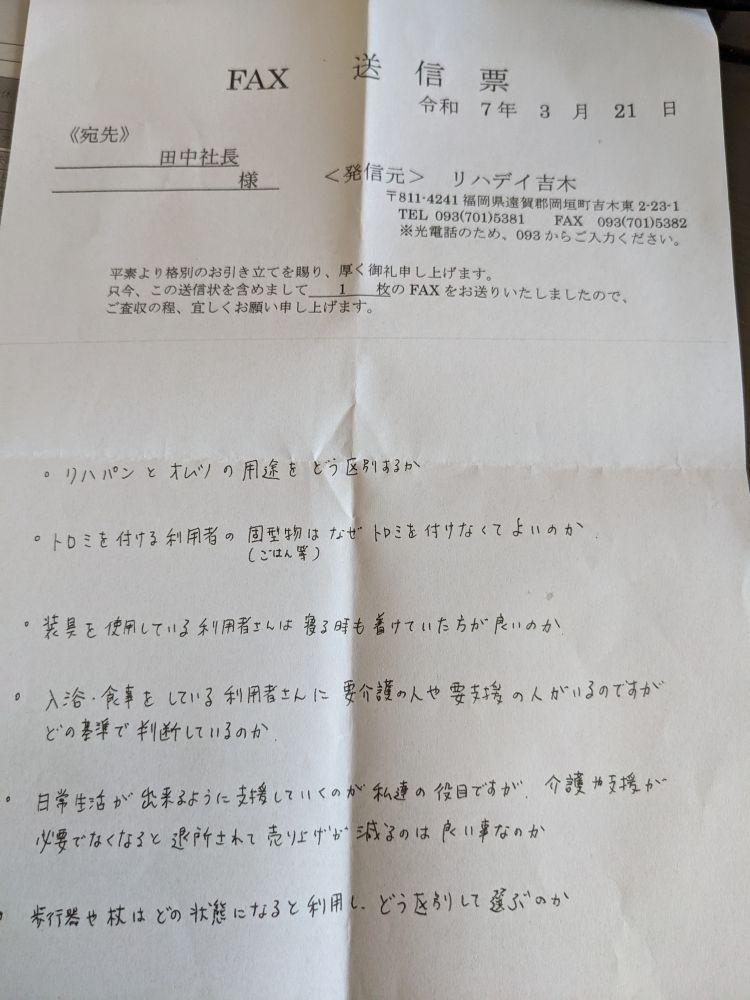 FAX 送信票
令和 7年 3月 21日
《宛先》
田中社長
様
＜発信元＞ リハデイ吉木
〒811-4241 福岡県遠賀郡岡垣町吉木東 2-23-1
TEL 093(701)5381 FAX 093(701)5382
※光電話のため、093 からご入力ください。
平素より格別のお引き立てを賜り、厚く御礼申し上げます。
只今、この送信状を含めまして 1 枚の FAX をお送りいたしましたので、
ご査収の程、宜しくお願い申し上げます。
。リハパンとオムツの用途をどう区別するか
。トロミを付ける利用者の固型物はなぜトロミを付けなくてよいのか.
(ごはん等)
。装具を使用している利用者さんは寝る時も着けていた方が良いのか.
。入浴・食事をしている利用者さんに要介護の人や要支援の人がいるのですが
どの基準で判断しているのか.
。日常生活が出来るように支援していくのが私達の役目ですが、介護や支援が
必要でなくなると退所されて売り上げが減るのは良い事なのか
。歩行器や杖はどの状態になると利用し、どう区別して選ぶのか